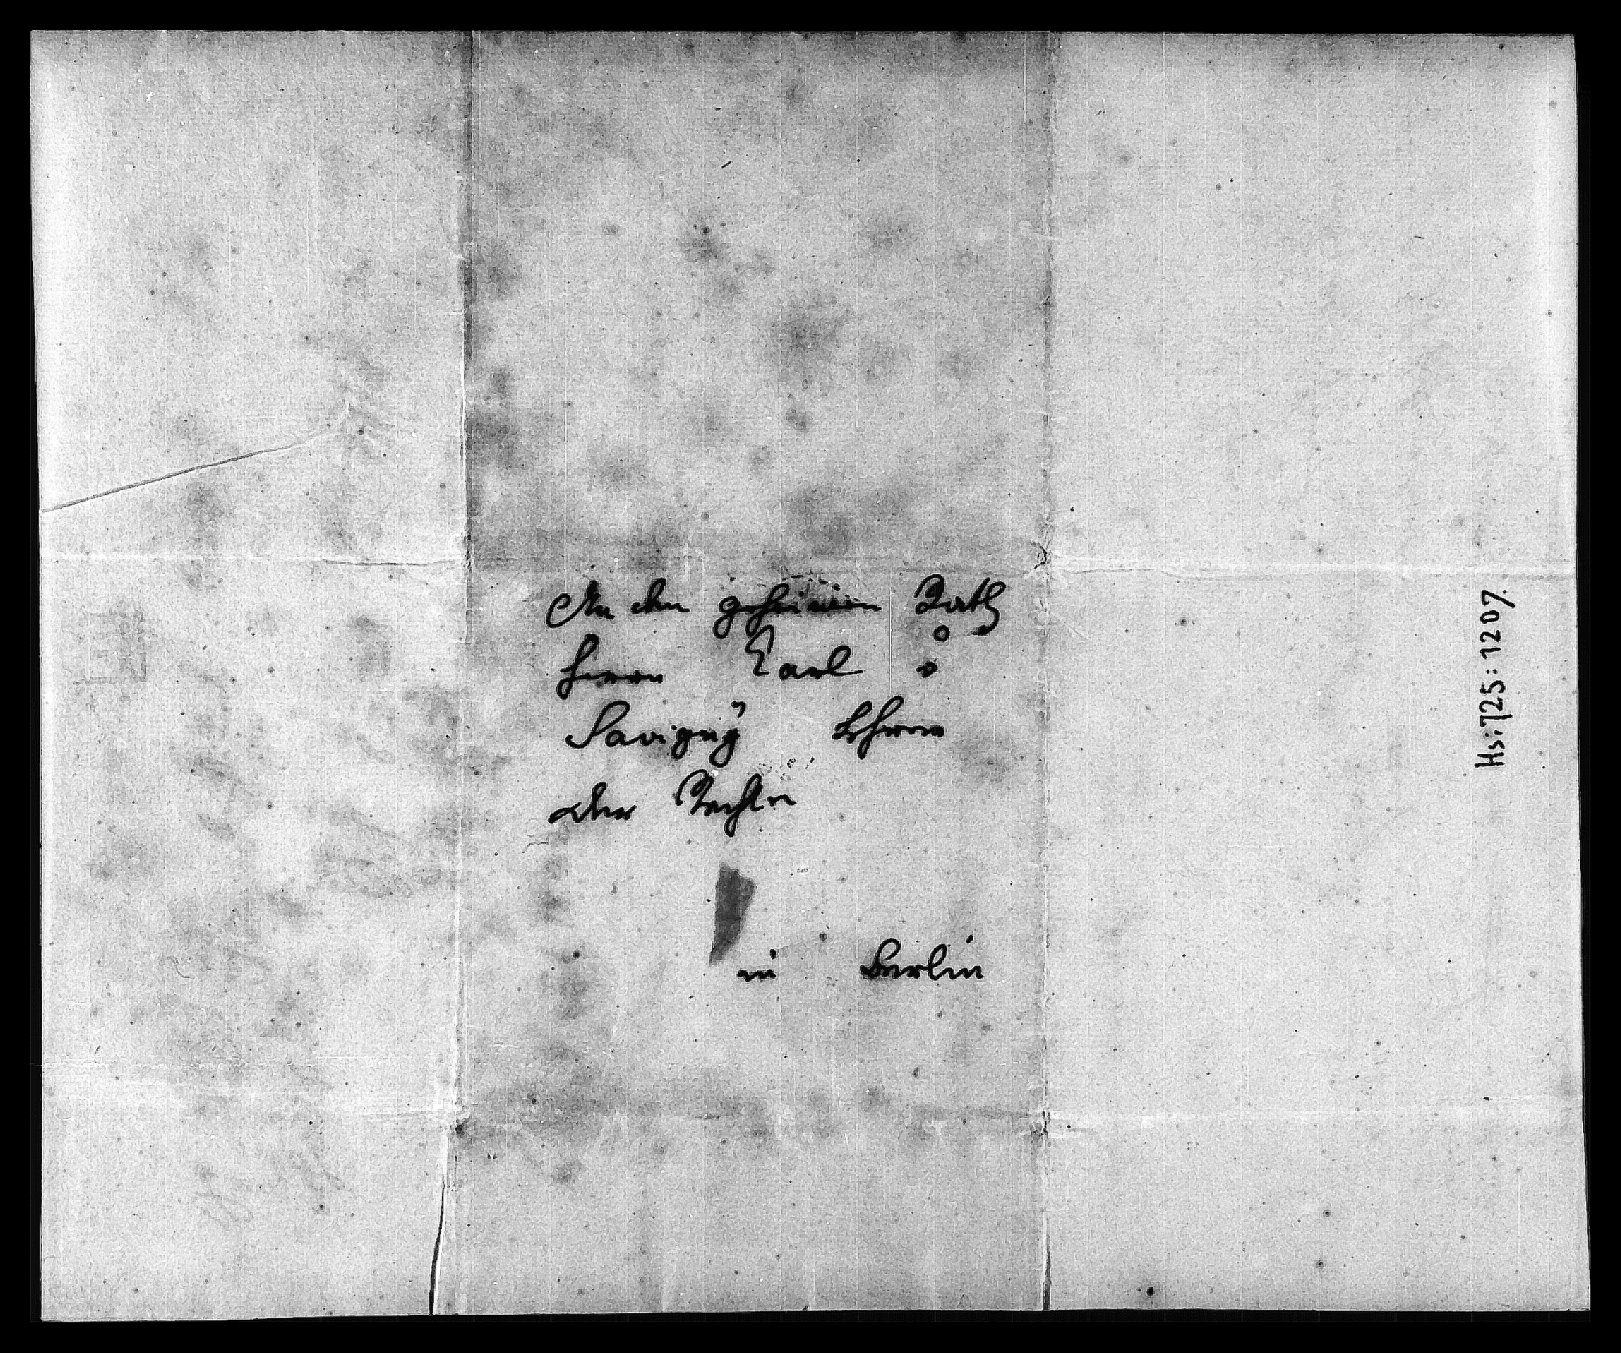 An den geheimen Rath
Herrn Carl v
Savigny Lehrer
der Rechte
in Berlin
Hs:725:1207.